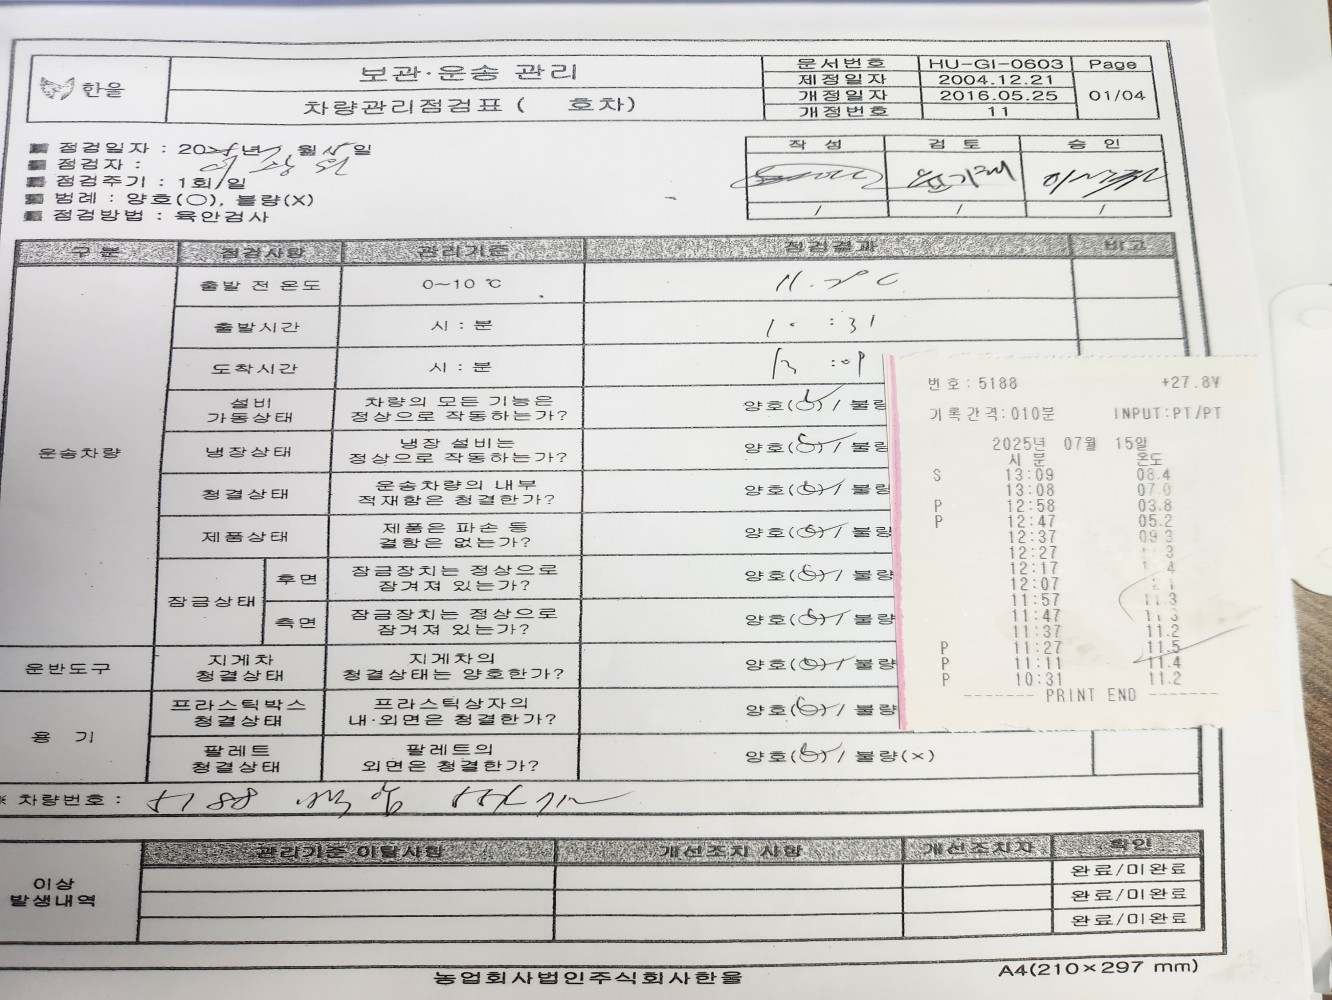 한울
보관·운송 관리
차량관리점검표 ( 호차)
문서번호 HU-GI-0603 Page
제정일자 2004.12.21
개정일자 2016.05.25 01/04
개정번호 11
■ 점검일자 : 20 년 월 일
■ 점검자 :
■ 점검주기 : 1회/일
■ 범례 : 양호(○), 불량(X)
■ 점검방법 : 육안검사
작 성 검 토 승 인
/ / /
구 분 점검사항 관리기준 점검결과 비고
운송차량
출발 전 온도 0~10 ℃ 11.2℃
출발시간 시 : 분 10:31
도착시간 시 : 분 13:09
설비 가동상태 차량의 모든 기능은 정상으로 작동하는가? 양호(○) / 불량
냉장상태 냉장 설비는 정상으로 작동하는가? 양호(○) / 불량
청결상태 운송차량의 내부 적재함은 청결한가? 양호(○) / 불량
제품상태 제품은 파손 등 결함은 없는가? 양호(○) / 불량
잠금상태 후면 잠금장치는 정상으로 잠겨져 있는가? 양호(○) / 불량
측면 잠금장치는 정상으로 잠겨져 있는가? 양호(○) / 불량
운반도구 지게차 청결상태 지게차의 청결상태는 양호한가? 양호(○) / 불량
용 기
프라스틱박스 청결상태 프라스틱상자의 내·외면은 청결한가? 양호(○) / 불량
팔레트 청결상태 팔레트의 외면은 청결한가? 양호(○) / 불량(×)
※ 차량번호 : 5188
이상 발생내역
관리기준 이탈사항 개선조치 사항 개선조치자 확인
완료/미완료
완료/미완료
완료/미완료
농업회사법인주식회사한울
A4(210×297 mm)
번호:5188 +27.8V
기록간격:010분 INPUT:PT/PT
2025년 07월 15일
시 분 온도
S 13:09 08.4
13:08 07.0
P 12:58 03.8
P 12:47 05.2
12:37 09.3
12:27
12:17
12:07
11:57 11.3
11:47
11:37 11.2
P 11:27 11.5
P 11:11 11.4
P 10:31 11.2
------- PRINT END -------